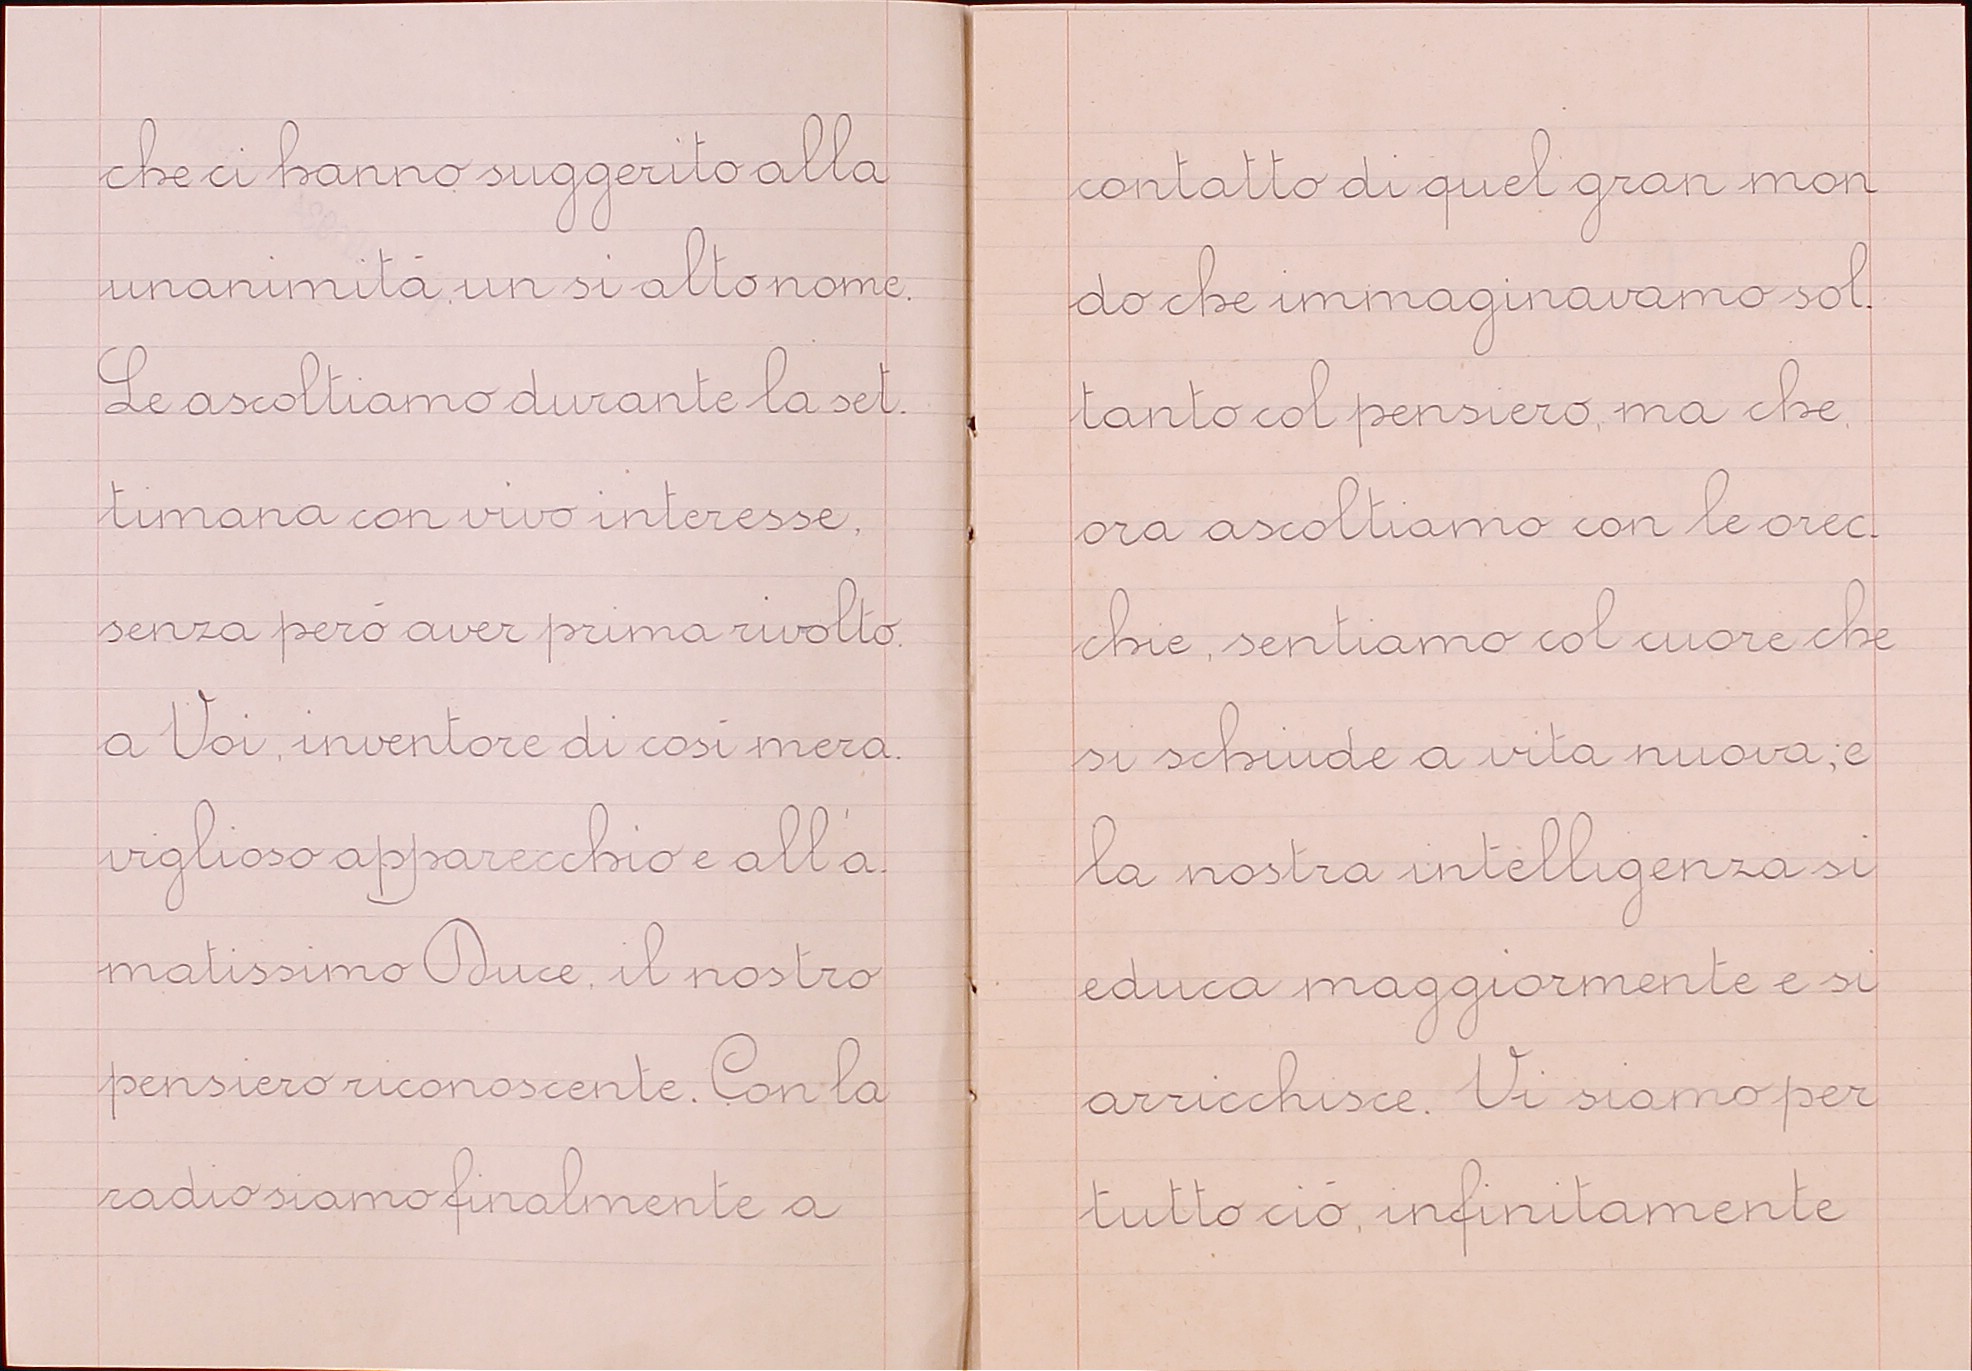 che ci hanno suggerito alla
unanimità, un si alto nome.
Le ascoltiamo durante la set.
timana con vivo interesse,
senza però aver prima rivolto.
a Voi, inventore di così mera.
viglioso apparecchio e all'a.
matissimo Duce, il nostro
pensiero riconoscente. Con la
radio siamo finalmente a
contatto di quel gran mon
do che immaginavamo sol.
tanto col pensiero, ma che,
ora ascoltiamo con le orec.
chie, sentiamo col cuore che
si schiude a vita nuova; e
la nostra intelligenza si
educa maggiormente e si
arricchisce. Vi siamo per
tutto ciò, infinitamente